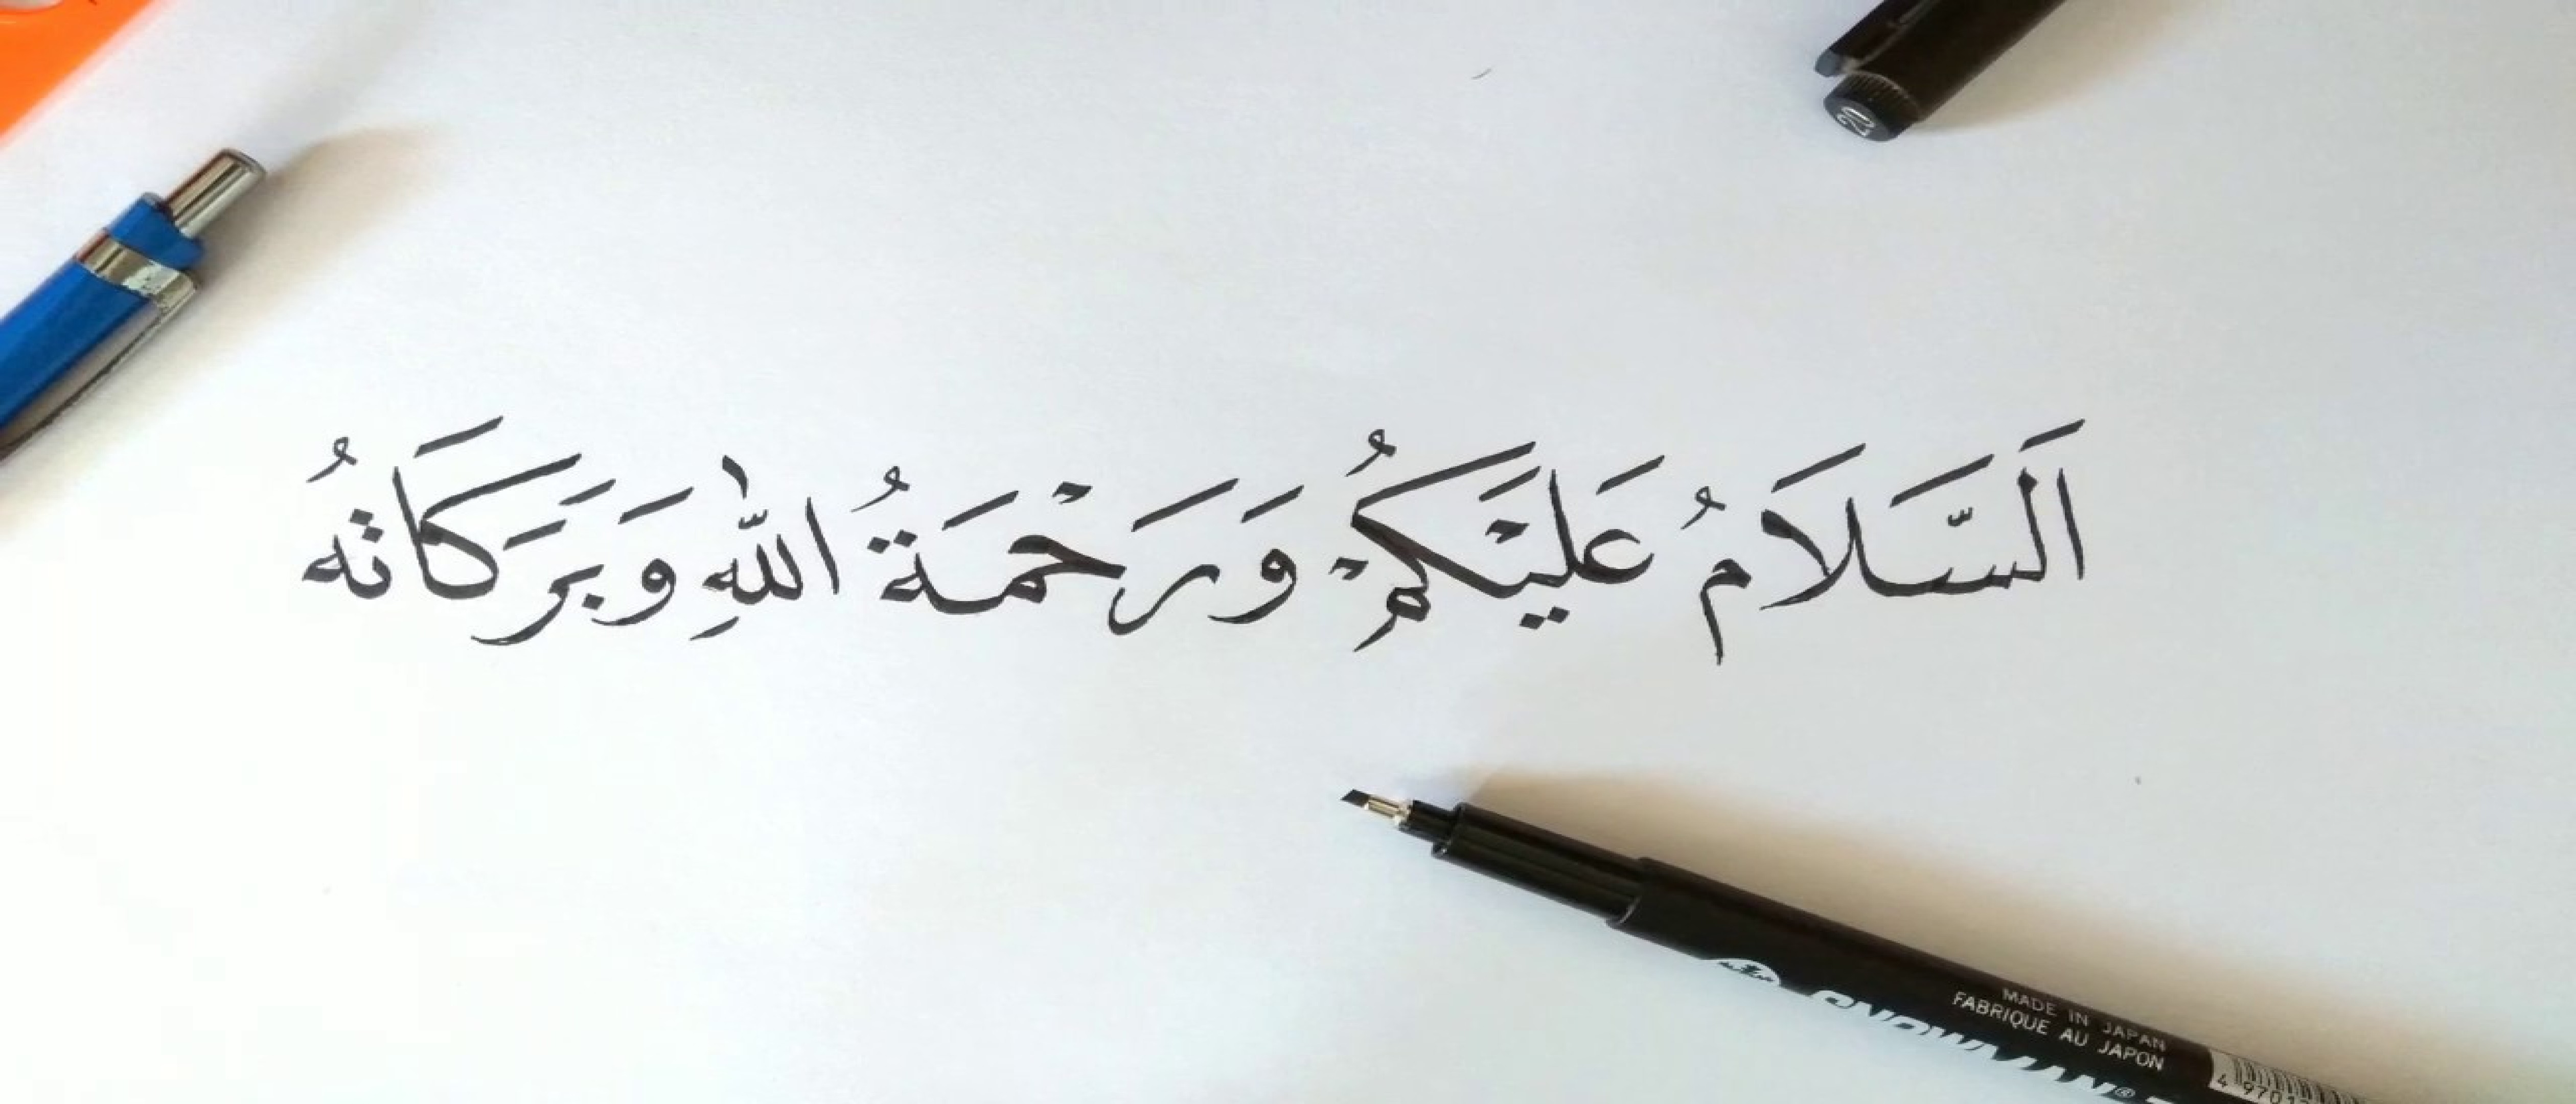 اَلسَّلَامُ عَلَيْكُمْ وَرَحْمَةُ اللّٰهِ وَبَرَكَاتُهُ
20
SNOWMAN®
MADE IN JAPAN
FABRIQUE AU JAPON